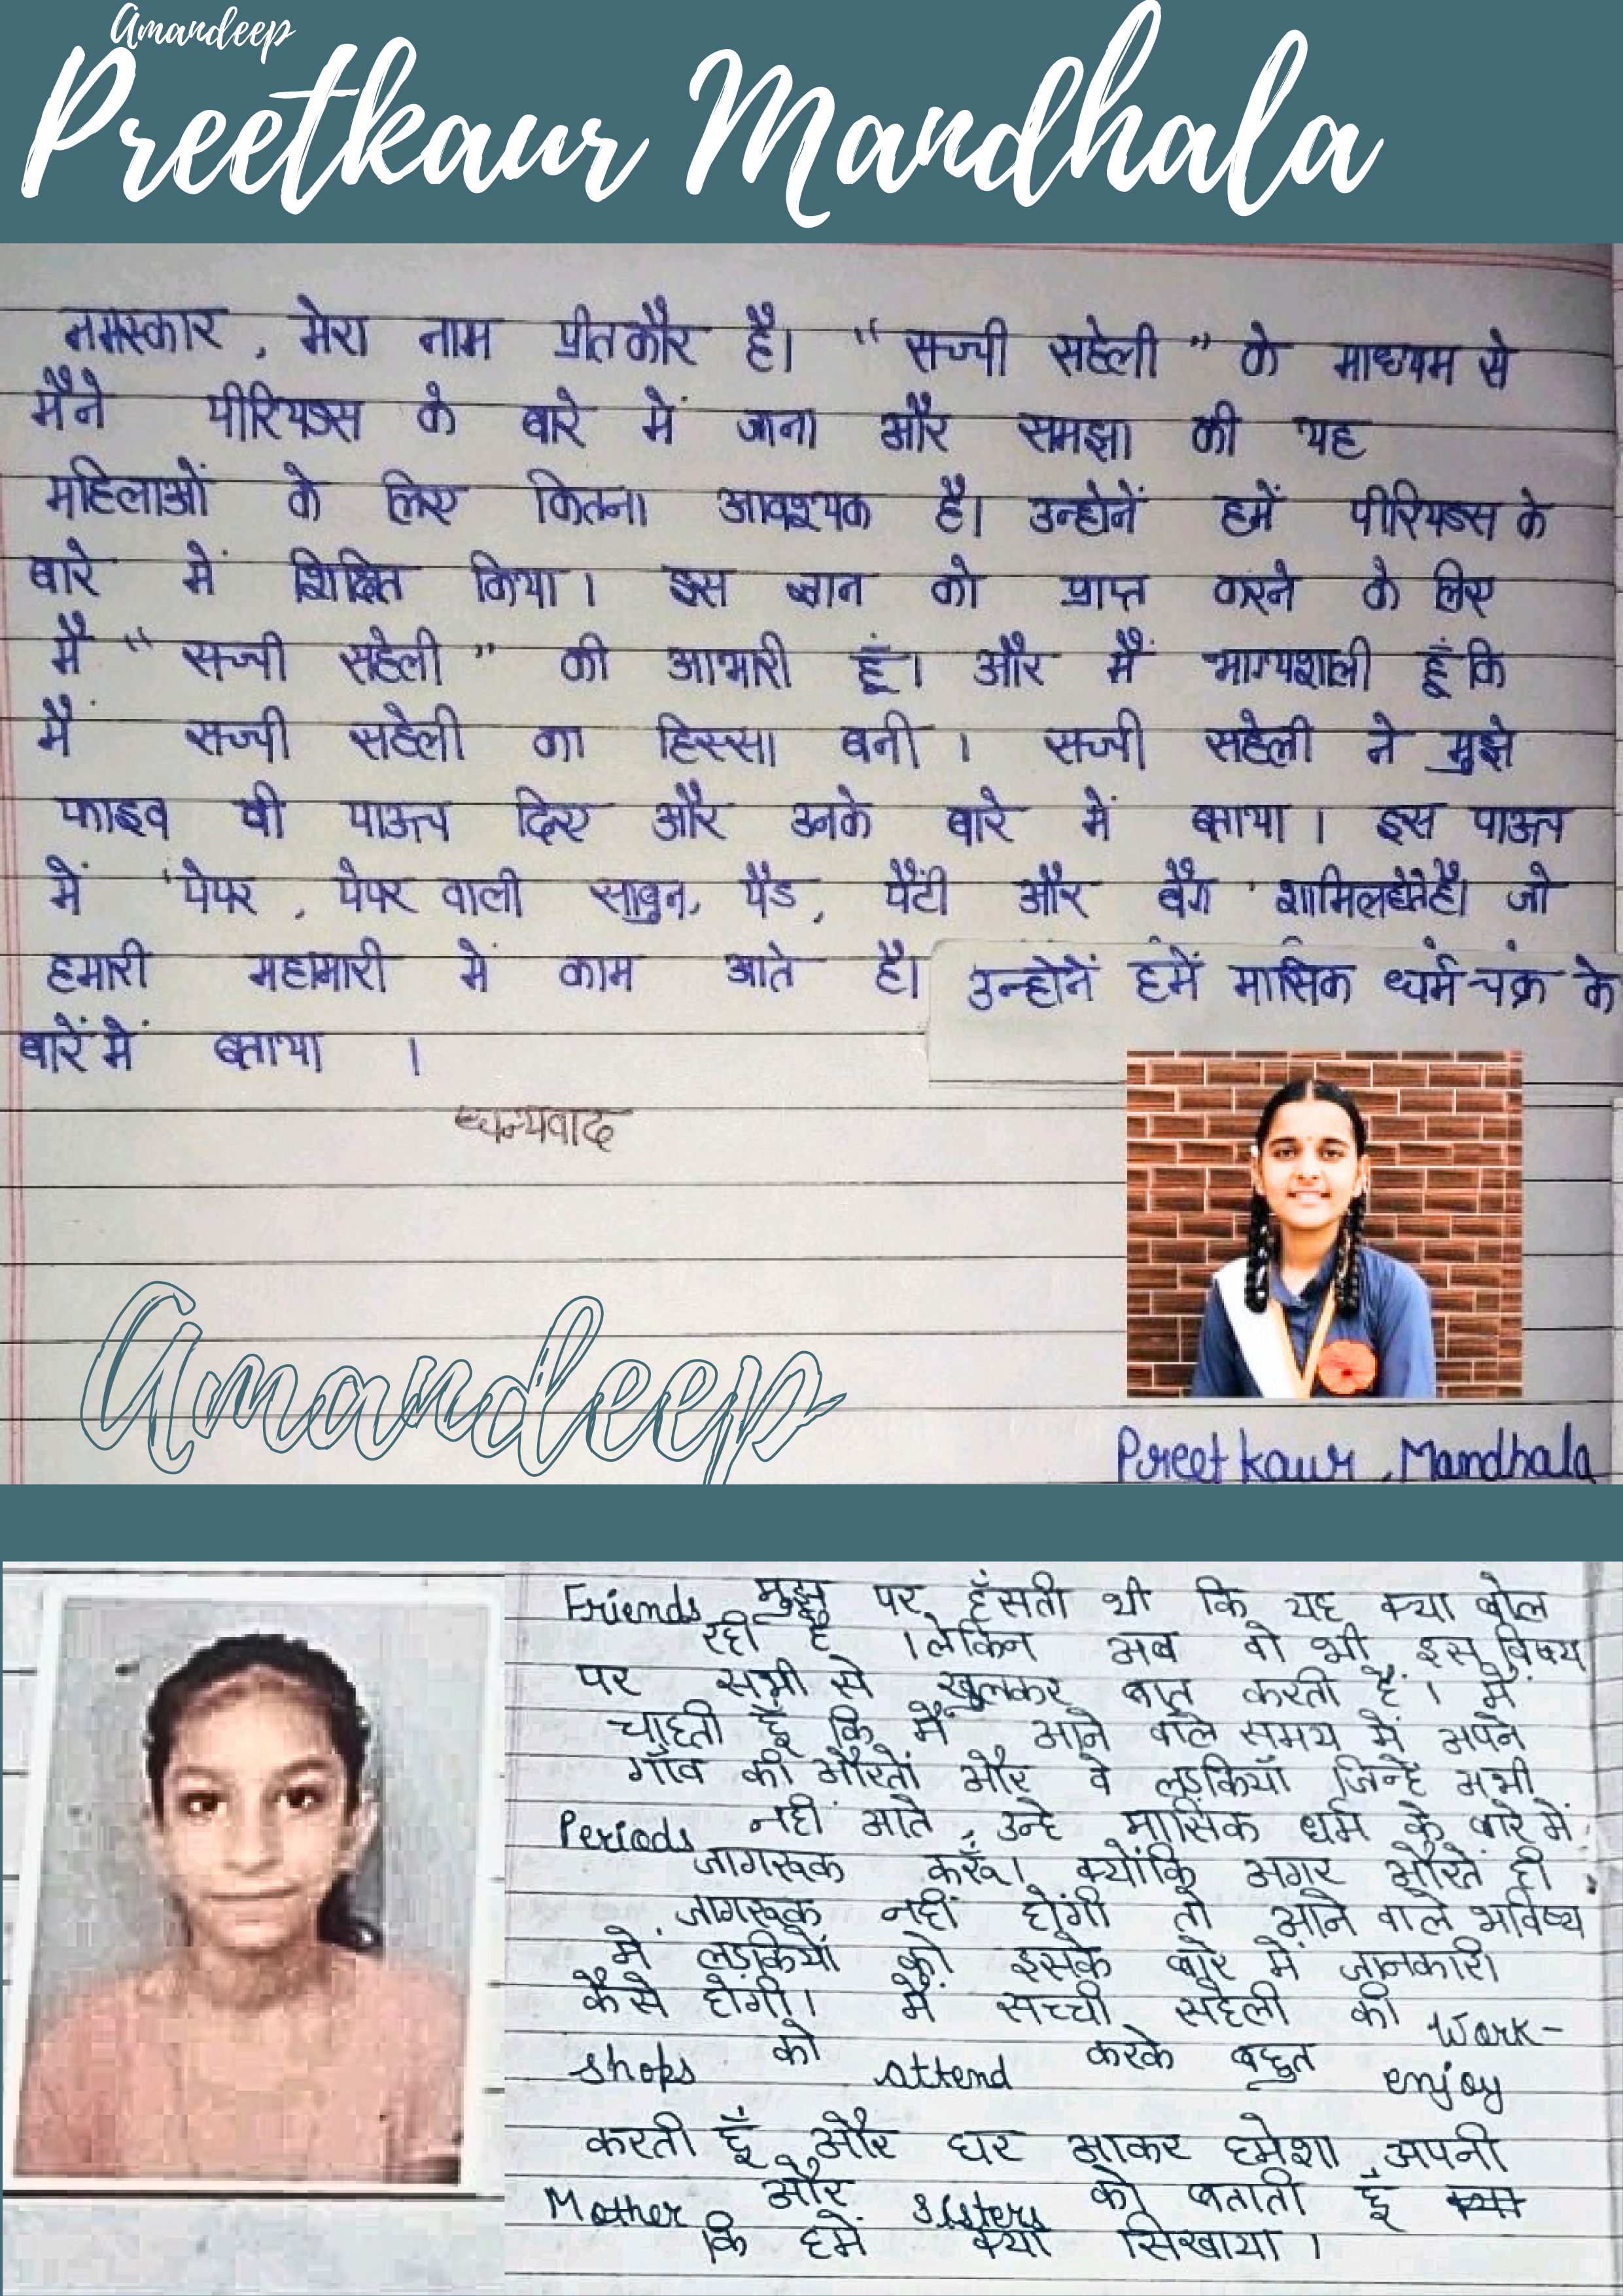 Amandeep
Preetkaur Mandhala
नमस्कार , मेरा नाम प्रीतकौर है। "सच्ची सहेली" के माध्यम से
मैने पीरियड्स के बारे में जाना और समझा की यह
महिलाओं के लिए कितना आवश्यक है। उन्होनें हमें पीरियड्स के
बारे में शिक्षित किया । इस ज्ञान को प्राप्त करने के लिए
मैं "सच्ची सहेली" की आभारी हूँ। और मैं भाग्यशाली हूँ कि
मैं सच्ची सहेली का हिस्सा बनी । सच्ची सहेली ने मुझे
फाइव पी पाऊच दिए और उनके बारे में बताया । इस पाऊच
में 'पेपर , पेपर वाली साबुन, पैड, पैंटी और बैग' शामिल होते है। जो
हमारी महामारी में काम आते है। उन्होनें हमें मासिक धर्म चक्र के
बारें में बताया ।
धन्यवाद
Amandeep
Preet kaur, Mandhala
Friends मुझ पर हँसती थी कि यह क्या बोल
रही है । लेकिन अब वो भी इस विषय
पर सभी से खुलकर बात करती हैं । मैं
चाहती हूँ कि मैं आने वाले समय में अपने
गाँव की औरतों और वे लड़कियाँ जिन्हें अभी
Periods नहीं आते , उन्हे मासिक धर्म के बारे में
जागरूक करूँ। क्योंकि अगर औरतें ही
जागरूक नहीं होंगी तो आने वाले भविष्य
में लड़कियों को इसके बारे में जानकारी
कैसे होगी। मैं सच्ची सहेली की Work-
shops को attend करके बहुत enjoy
करती हूँ और घर आकर हमेशा अपनी
Mother और sisters को बताती हूँ
कि हमें क्या सिखाया ।